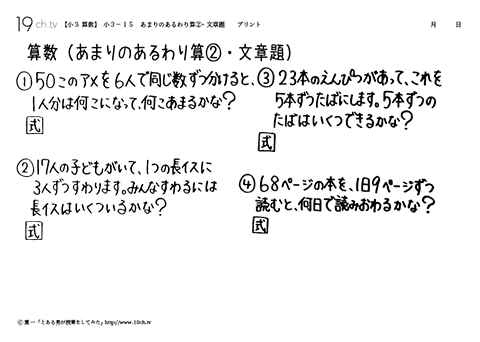 19ch.tv 【小3 算数】 小3-15 あまりのあるわり算②・文章題 プリント 月 日
算数（あまりのあるわり算②・文章題）
①50このアメを6人で同じ数ずつ分けると、
1人分は何こになって、何こあまるかな？
式
②17人の子どもがいて、1つの長イスに
3人ずつすわります。みんなすわるには
長イスはいくついるかな？
式
③23本のえんぴつがあって、これを
5本ずつたばにします。5本ずつの
たばはいくつできるかな？
式
④68ページの本を、1日9ページずつ
読むと、何日で読みおわるかな？
式
©葉一「とある男が授業をしてみた」http://www.19ch.tv